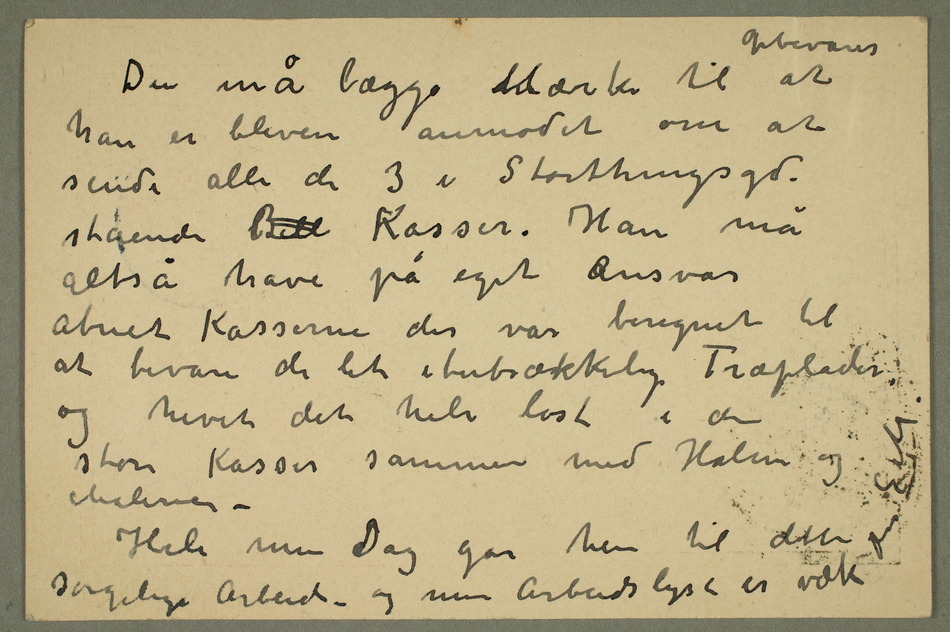 opbevares
Du må lægge Mærke til at
han er bleven anmodet om at
sende alle de 3 i Storthingsgd.
stående Bill Kasser. Han må
altså have på eget Ansvar
åbnet Kasserne der var beregnet til
at bevare de let itubrækkelige Træplader.
og hevet det hele løst i de
store Kasser sammen med Halm og
Malerier –
Hele min Dag går hen til dette
sørgelige Arbeid – og min Arbeidslyst er væk